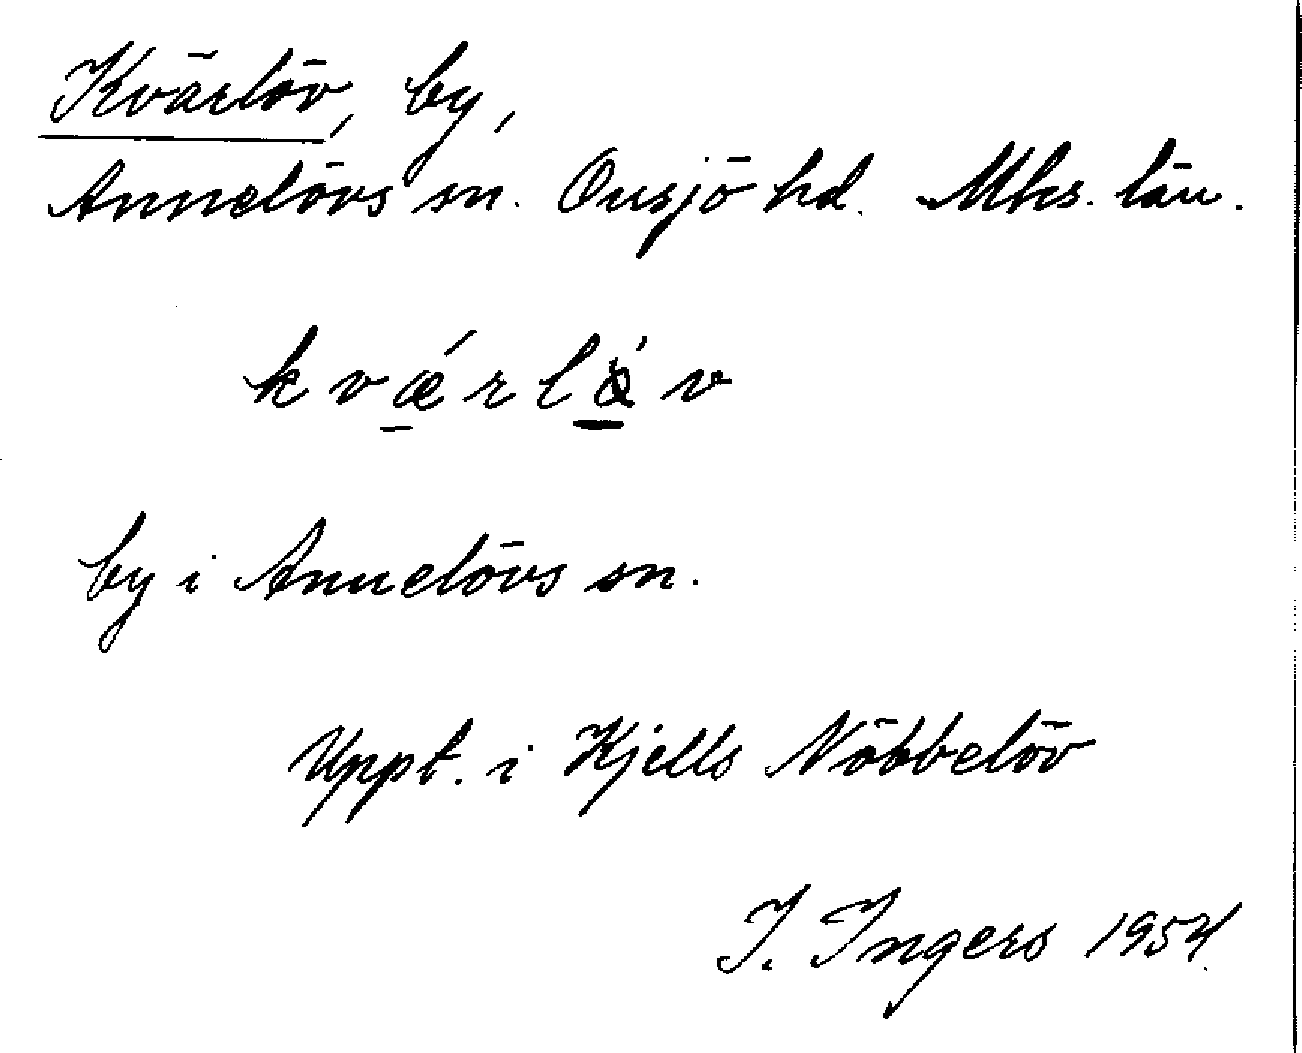 Kvärlöv, by,
Annelövs sn. Onsjö hd. Mhs. län.
kværløv
by i Annelövs sn.
Uppt. i Kjells Nöbbelöv
I. Ingers 1954.